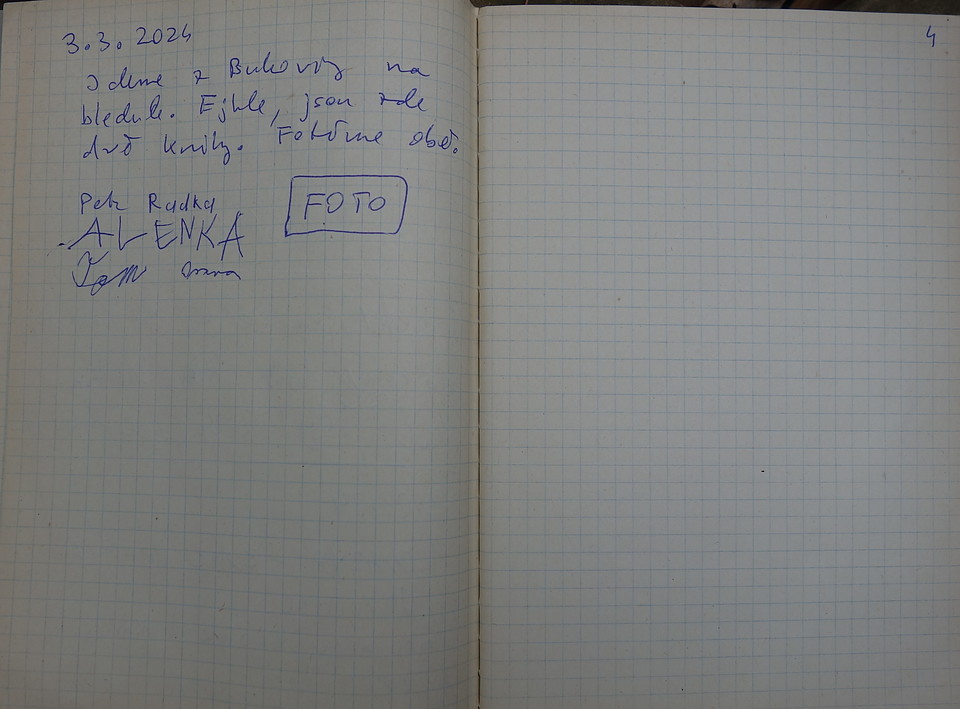 3.3. 2024
Jdeme z Bukoviny na
bledule. Ejhle, jsou zde
dvě knihy. Fotíme obě.
Petr Radka
FOTO
ALENKA
Tom
4